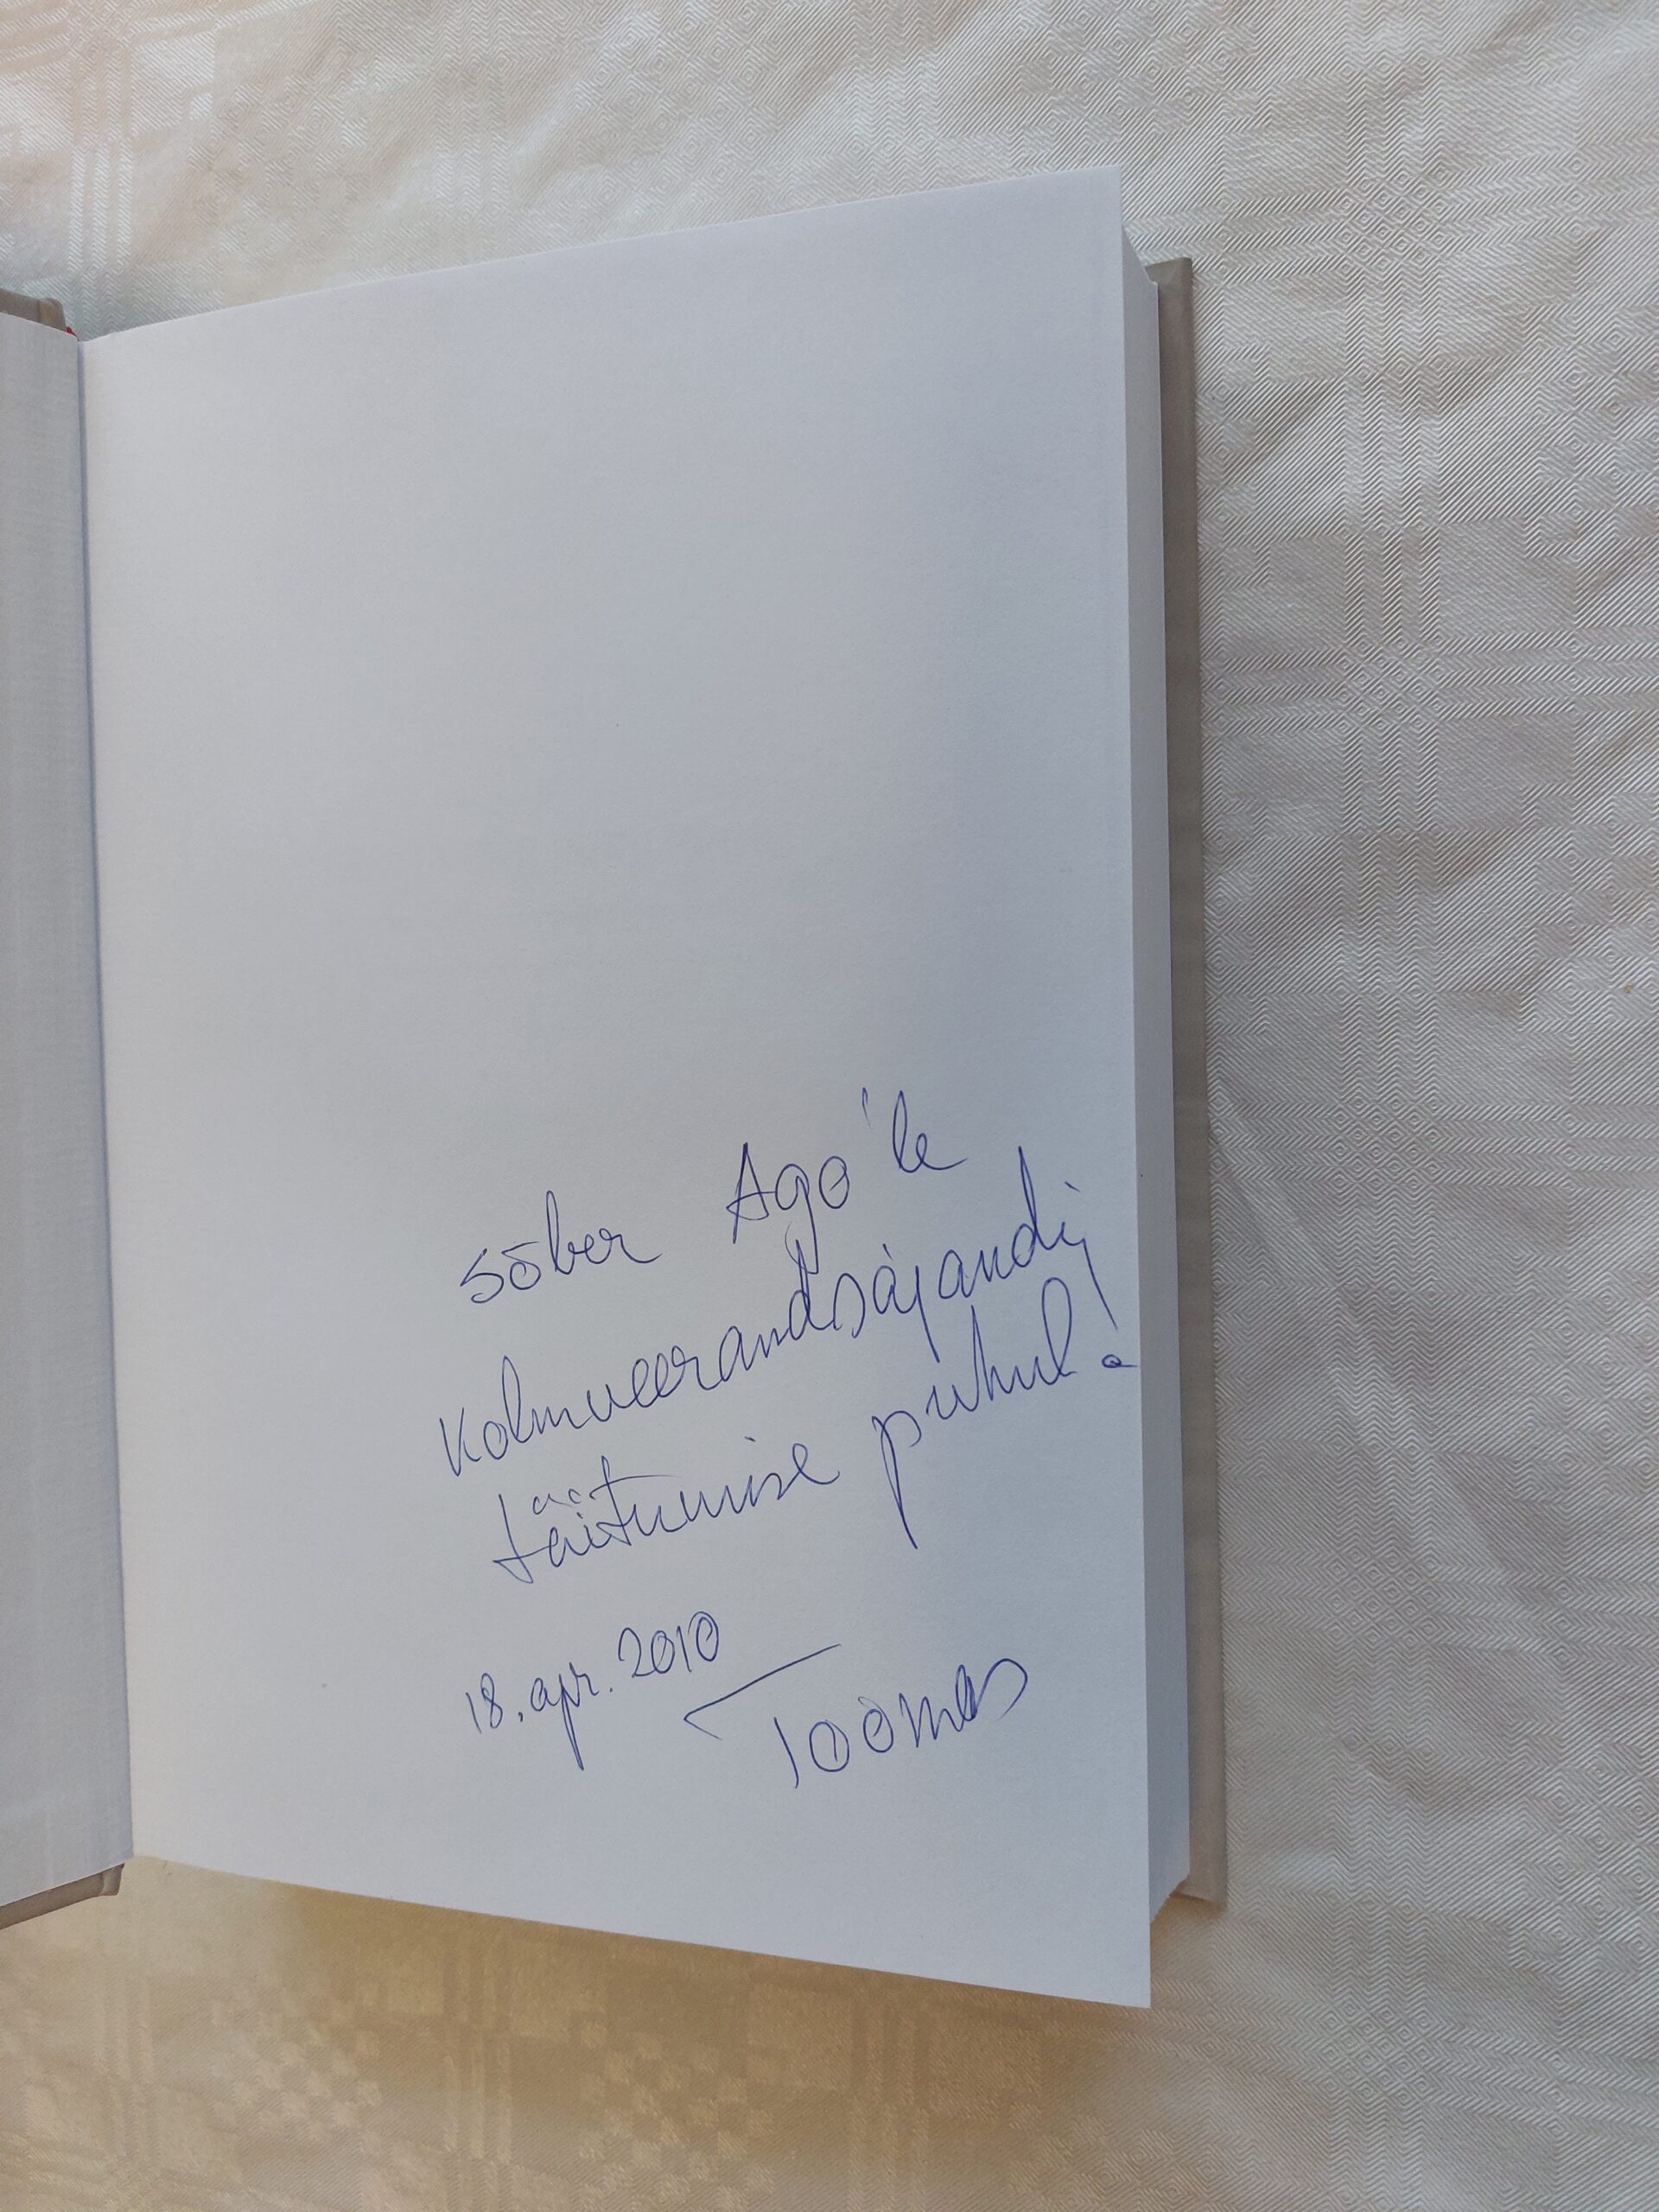 sõber Ago'le
Kolmveerandsajandi
täitumise puhul!
18. apr. 2010
Toomas